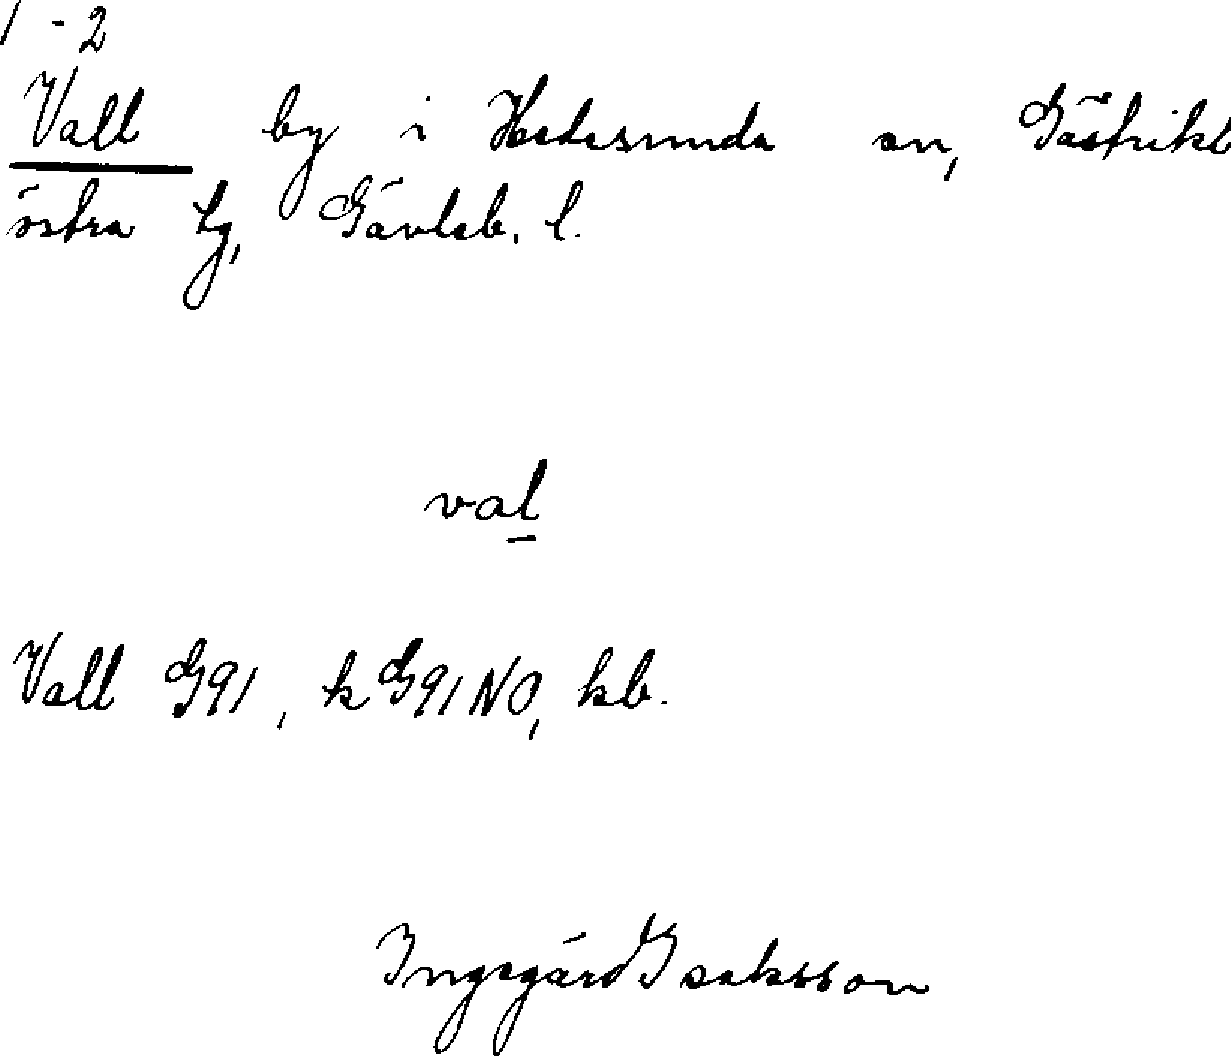 1-2
Vall by i Hedesunda sn, Gästrikl
östra tg, Gävleb. l.
val
Vall G91, k G91NO, kb.
Ingegärd Isaksson